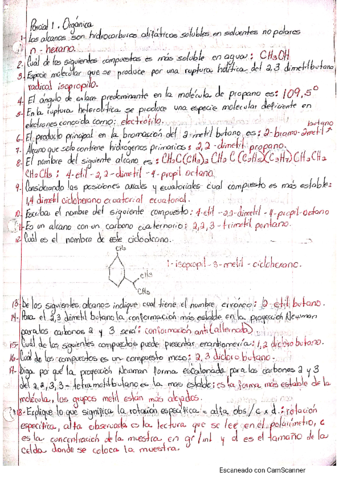 Parcial 1. Orgánica
1- los alcanos son hidrocarburos alifáticos solubles en solventes no polares
n-hexano.
2. Cuál de los siguientes compuestos es más soluble en agua: CH3OH
3. Especie molecular que se produce por una ruptura hólitica del 2,3 dimetilbutano
radical isopropilo.
4. El ángulo de enlace predominante en la molécula de propano es: 109,5°
5. En la ruptura heterolítica se produce una especie molecular deficiente en
electrones conocida como: electrófilo.
butano
6. El producto principal en la bromación del 2-metil butano es: 2-bromo-2metil
7. Alcano que solo contiene hidrógenos primarios: 2,2-dimetil propano.
8. El nombre del siguiente alcano es: CH3C(CH3)2 CH2 C(C2H5)(C3H7)CH2CH2
CH2CH3: 4-etil-2,2-dimetil-4-propil octano.
9. Considerando las posiciones axiales y ecuatoriales cuál compuesto es más estable:
1,4 dimetil ciclohexano ecuatorial ecuatorial.
10. Escriba el nombre del siguiente compuesto: 4-etil-2,3-dimetil-4-propil-octano
11. Es un alcano con un carbono cuaternario: 2,2,3-trimetil pentano.
12. Cuál es el nombre de este cicloalcano.
CH3
1-isopropil-3-metil-ciclohexano.
CH3
CH3
13. De los siguientes alcanos indique cuál tiene el nombre erróneo: 2 etil butano.
14. Para el 2,3 dimetil butano la conformación más estable en la proyección Newman
para los carbonos 2 y 3 será: conformación anti (alternada)
15. Cuál de los siguientes compuestos puede presentar enantiomería: 1,2 dicloro butano.
16. Cuál de los compuestos es un compuesto meso: 2,3 dicloro butano.
17. Diga por qué la proyección Newman forma escalonada para los carbonos 2 y 3
del 2,2,3,3-tetrametilbutano es la más estable: es la forma más estable de la
molécula, los grupos metil están más alejados.
18. Explique lo que significa la rotación específica = alfa obs / c x d: rotación
específica, alfa observada es la lectura que se lee en el polarímetro, c
es la concentración de la muestra en gr/ml y d es el tamaño de la
celda donde se coloca la muestra.
Escaneado con CamScanner